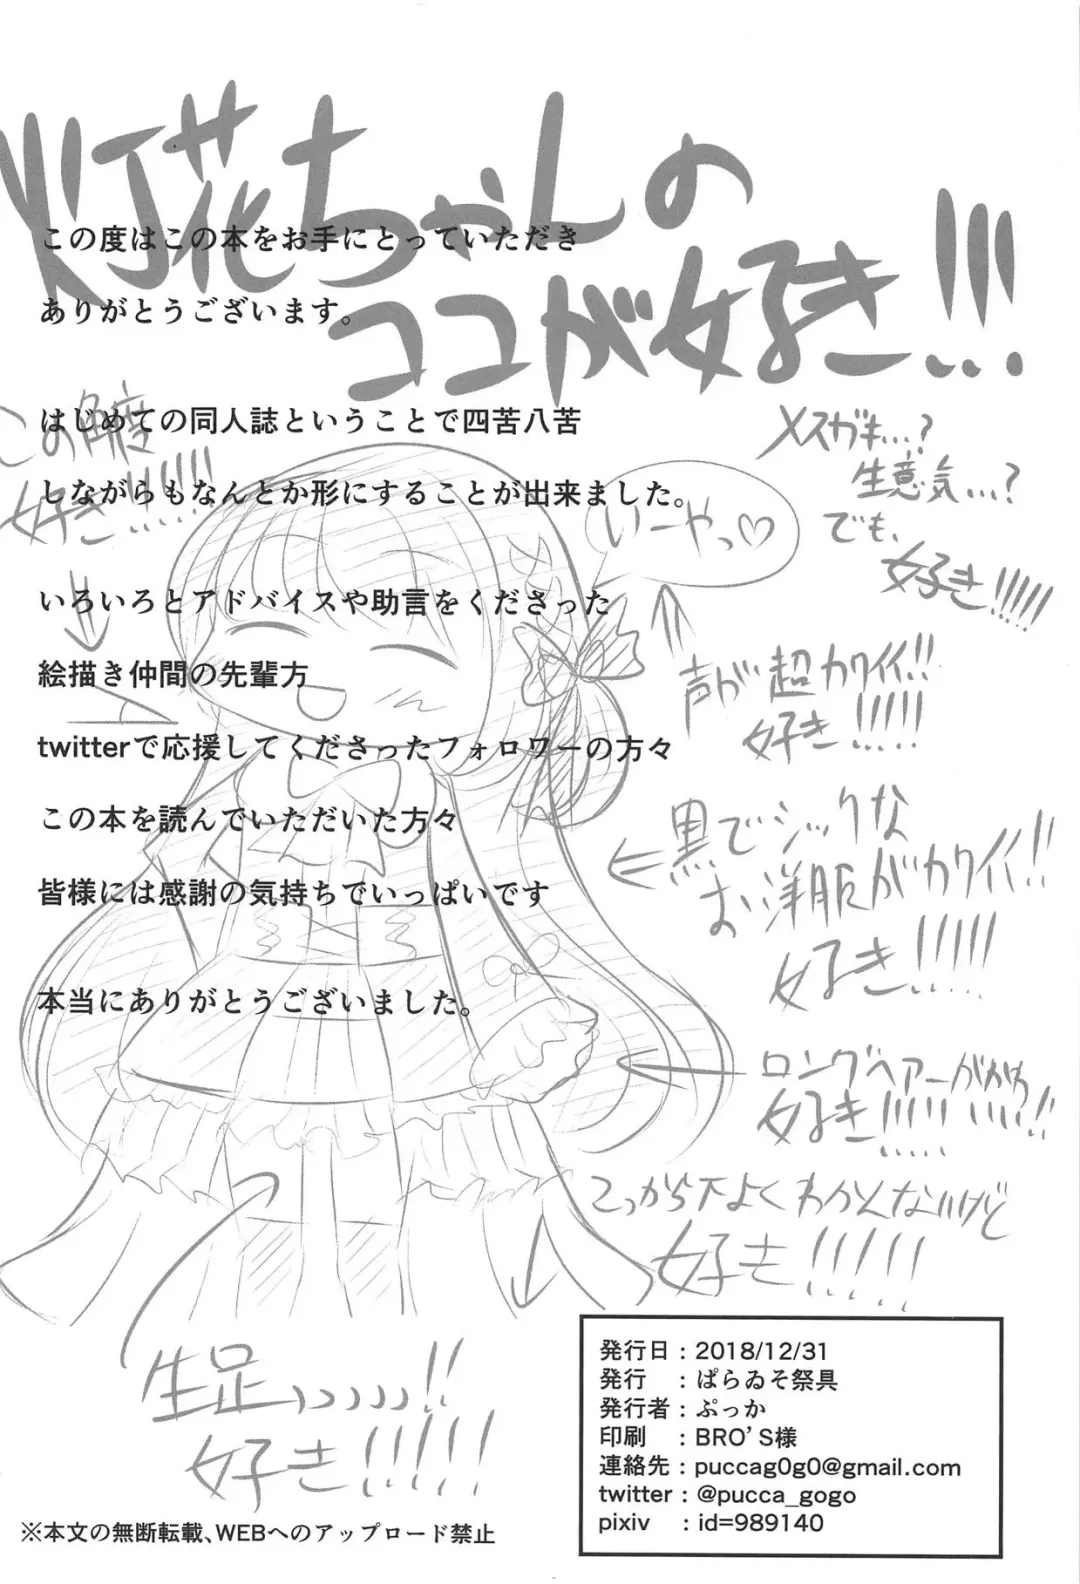 灯花ちゃんの
ココが好き!!!
この度はこの本をお手にとっていただき
ありがとうございます。
はじめての同人誌ということで四苦八苦
しながらもなんとか形にすることが出来ました。
いろいろとアドバイスや助言をくださった
絵描き仲間の先輩方
twitterで応援してくださったフォロワーの方々
この本を読んでいただいた方々
皆様には感謝の気持ちでいっぱいです
本当にありがとうございました。
この角度
好き!!!!!!
いーやっ♡
メスガキ...?
生意気...?
でも、
好き!!!!!
声が超カワイイ!!
好き!!!!!
黒でシックな
お洋服がカワイイ!!
好き!!!!!
ロングヘアーがかわ
いい!!
好き!!!!!
こっから下よくわかんないけど
好き!!!!!
生足ッッッッッ!!
好き!!!!!
発行日:2018/12/31
発行 :ぱらゐそ祭具
発行者:ぷっか
印刷 :BRO'S様
連絡先:puccag0g0@gmail.com
twitter:@pucca_gogo
pixiv :id=989140
※本文の無断転載、WEBへのアップロード禁止